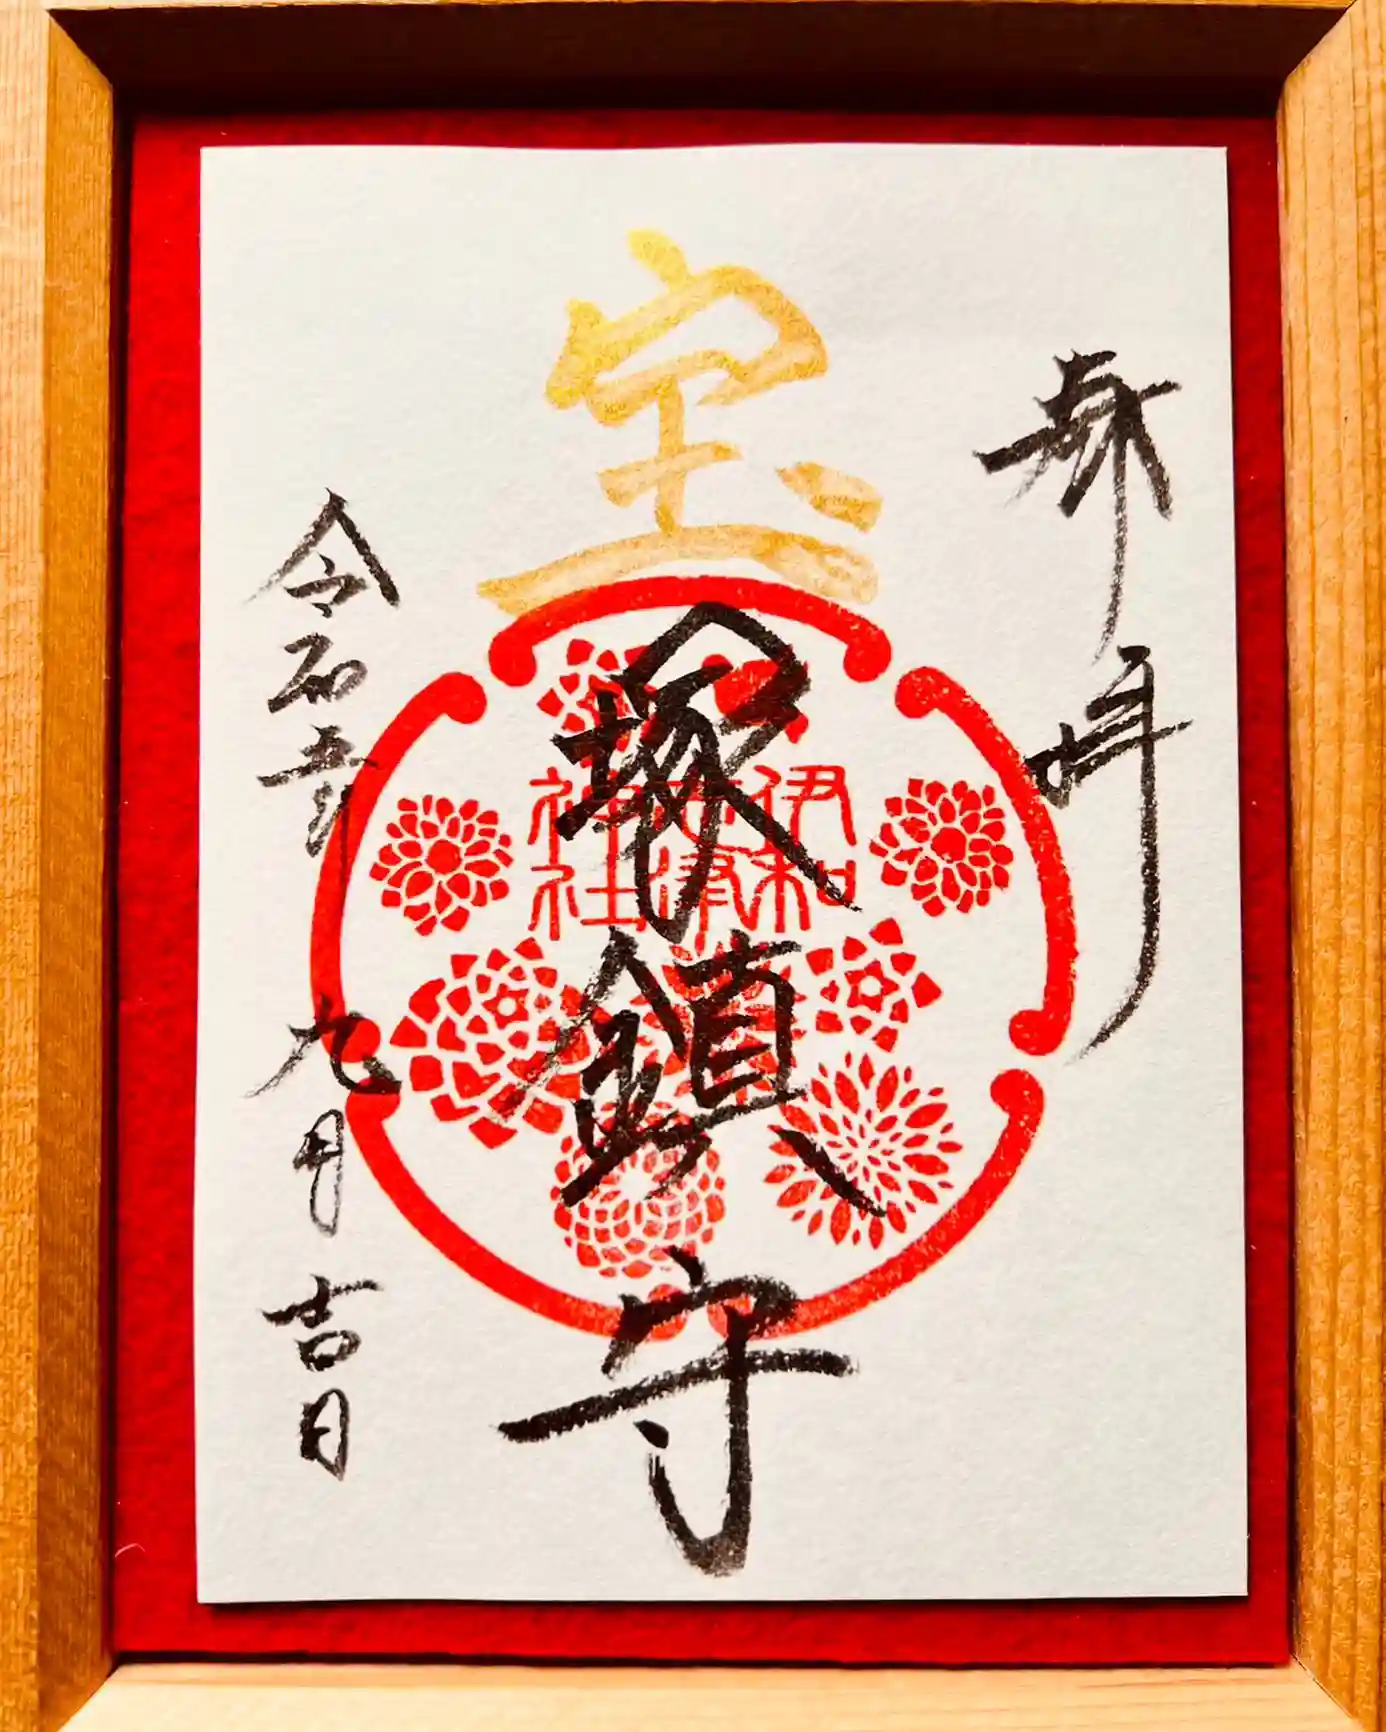 奉拝
宝塚鎮守
伊和
志津
神社
令和五年
九月吉日